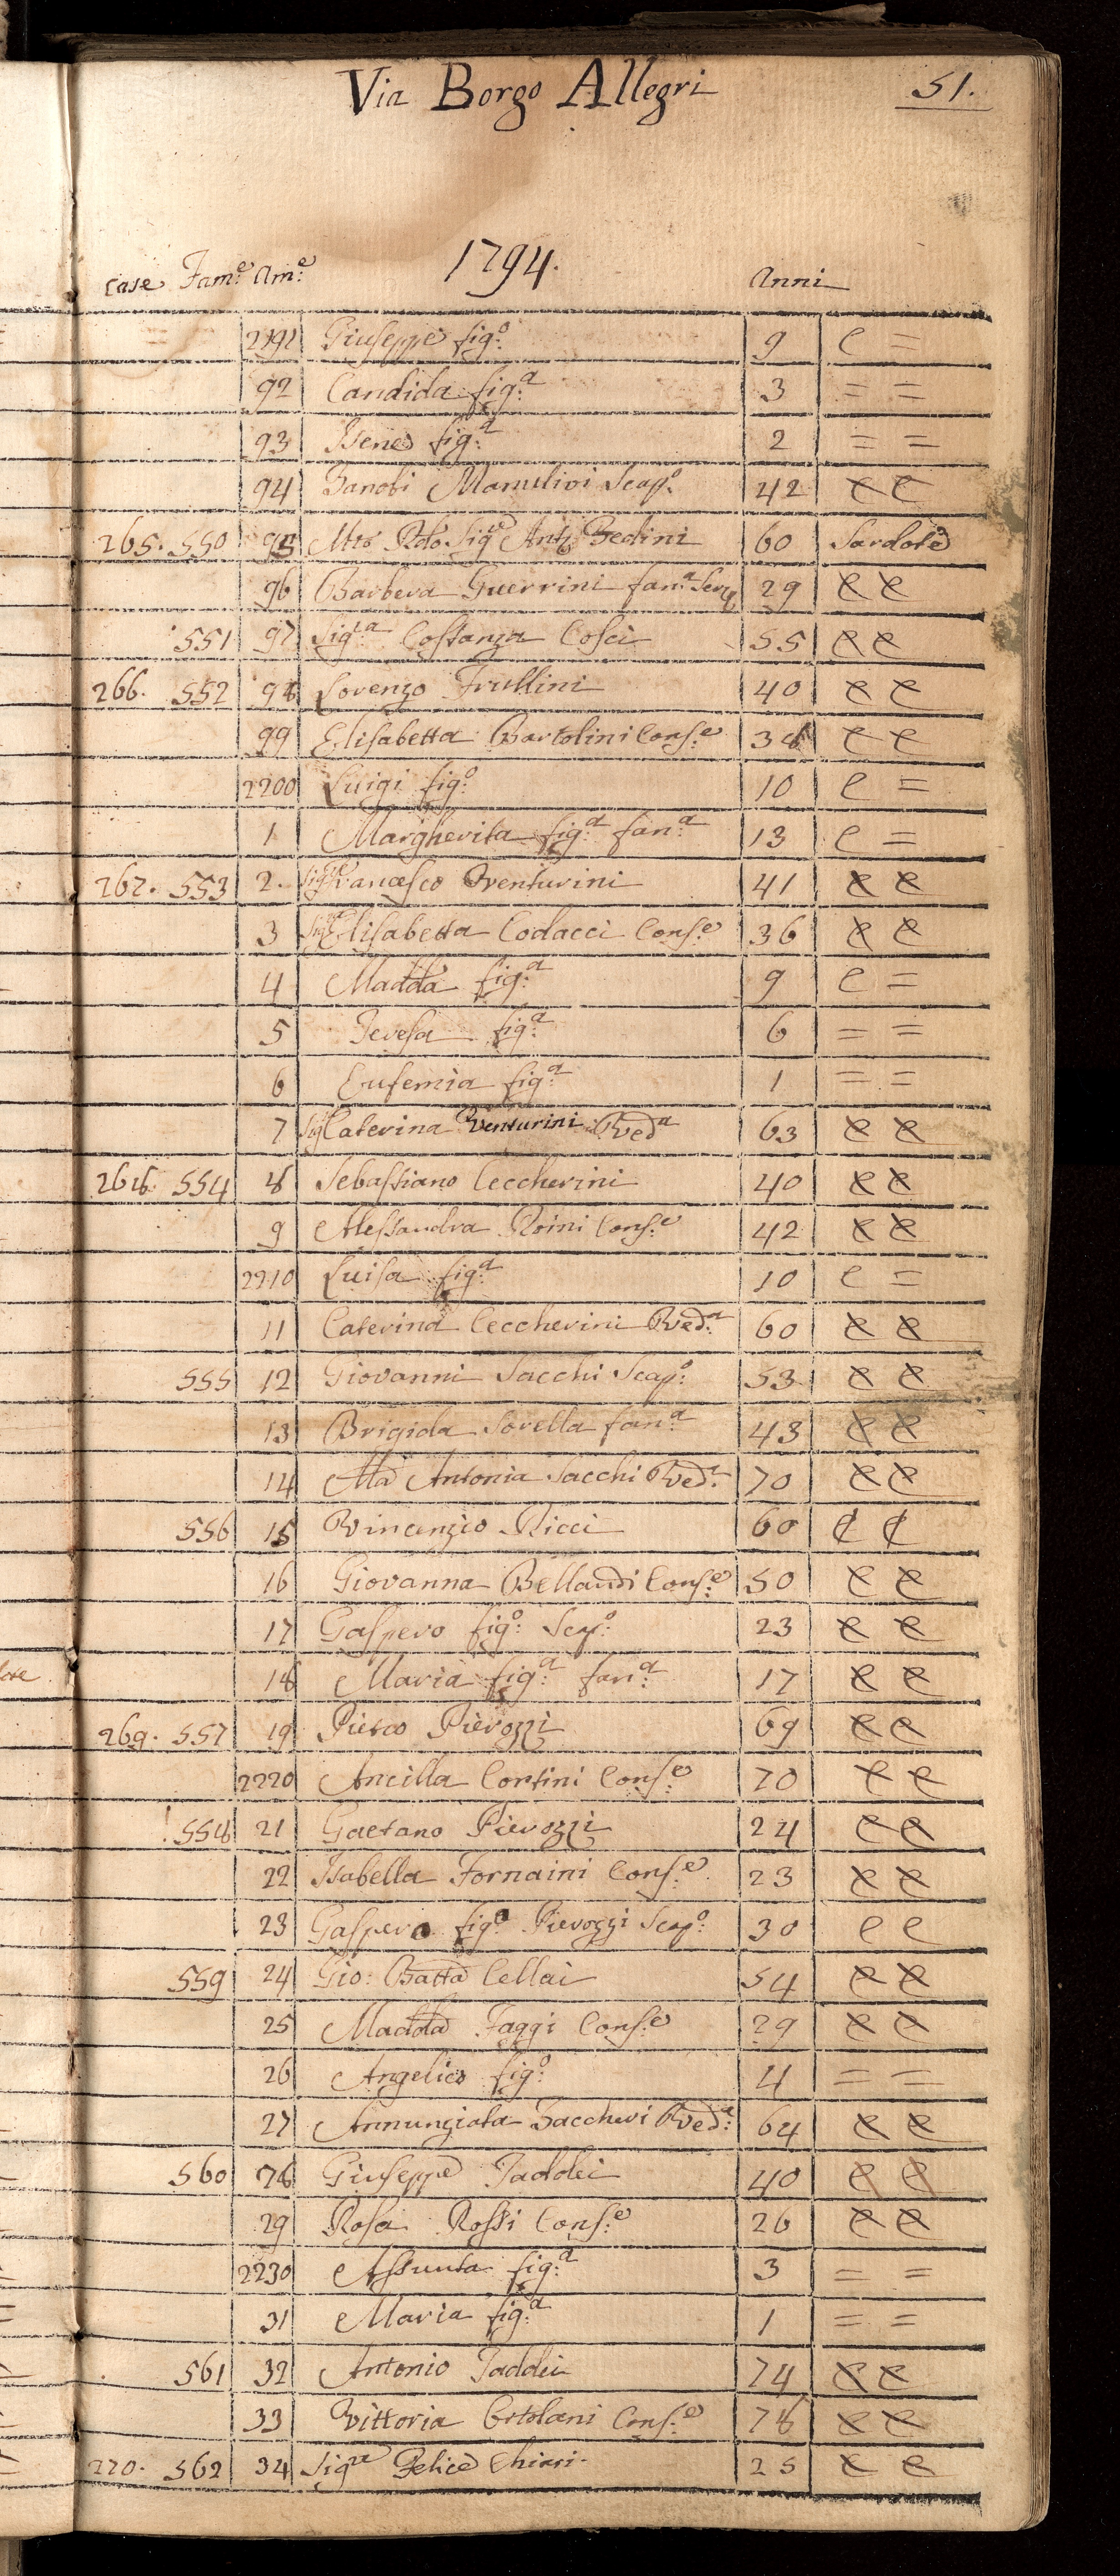 Via Borgo Allegri 51.
1794.
Case Fam.e Am.e Anni
2191 Giuseppe fig.o 9 C =
92 Candida fig.a 3 = =
93 fig.a 2 = =
94 Zanobi Scap.o 42 C C
265. 550 95 Sig.re Bedini 60 Sardote
96 Barbera Guerrini fan.a Serv 29 C C
551 97 Sig.ra Costanza Cosci 55 C C
266. 552 98 Lorenzo Frullini 40 C C
99 Elisabetta Bartolini Cons.e 38 C C
2200 Luigi fig.o 10 C =
1 Margherita fig.a fan.a 13 C =
267. 553 2. Sig.re Francesco Venturini 41 C C
3 Sig.ra Elisabetta Codacci Cons.e 36 C C
4 Madda fig.a 9 C =
5 Teresa fig.a 6 = =
6 Eufemia fig.a 1 = =
7 Sig.ra Caterina Venturini Ved.a 63 C C
268. 554 8 Sebastiano Ceccherini 40 C C
9 Alessandra Roini Cons.e 42 C C
2210 Luisa fig.a 10 C =
11 Caterina Ceccherini Ved.a 60 C C
555 12 Giovanni Sacchi Scap.o 53 C C
13 Brigida Sorella fan.a 43 C C
14 Ma Antonia Sacchi Ved.a 70 C C
556 15 Vincenzio Ricci 60 C C
16 Giovanna Bellandi Cons.e 50 C C
17 Gaspero fig.o Scap.o 23 C C
18 Maria fig.a fan.a 17 C C
269. 557 19 Pietro Pierozzi 69 C C
2220 Ancilla Contini Cons.e 70 C C
558 21 Gaetano Pierozzi 24 C C
22 Isabella Fornaini Cons.e 23 C C
23 Gaspero fig.o Pierozzi Scap.o 30 C C
559 24 Gio: Batta Cellai 54 C C
25 Madda Faggi Cons.e 29 C C
26 Angelico fig.o 4 = =
27 Annunziata Ved.a 64 C C
560 28 Giuseppe Taddei 40 C C
29 Rosa Rossi Cons.e 26 C C
2230 Assunta fig.a 3 = =
31 Maria fig.a 1 = =
561 32 Antonio Taddei 74 C C
33 Vittoria Ortolani Cons.e 78 C C
270. 562 34 Sig.ra Felice Chiari. 25 C C